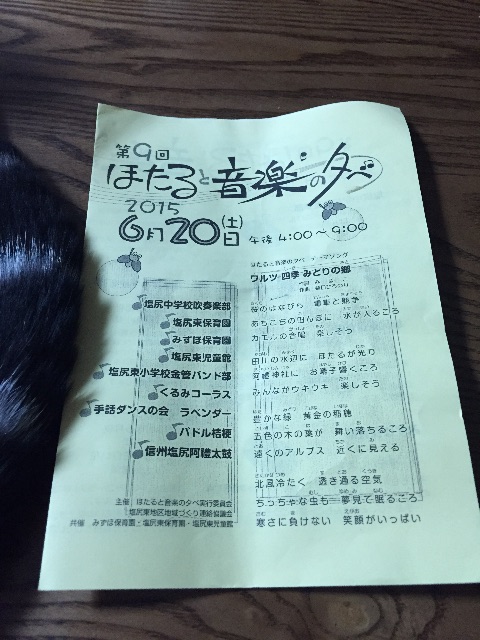 第9回
ほたると音楽の夕べ
2015
6月20日(土) 午後 4:00～9:00
塩尻中学校吹奏楽部
塩尻東保育園
みずほ保育園
塩尻東児童館
塩尻東小学校金管バンド部
くるみコーラス
手話ダンスの会 ラベンダー
パドル桔梗
信州塩尻阿禮太鼓
主催 ほたると音楽の夕べ実行委員会
塩尻東地区地域づくり連絡協議会
共催 みずほ保育園・塩尻東保育園・塩尻東児童館
ほたると音楽の夕べ テーマソング
ワルツ 四季 みどりの郷
桜のはなびら
あちこちの田んぼに 水が入るころ
カエルの合唱 楽しそう
田川の水辺に ほたるが光り
神社に お囃子響くころ
みんながウキウキ 楽しそう
豊かな緑 黄金の稲穂
五色の木の葉が 舞い落ちるころ
遠くのアルプス 近くに見える
北風冷たく 透き通る空気
ちっちゃな虫も 夢見て眠るころ
寒さに負けない 笑顔がいっぱい